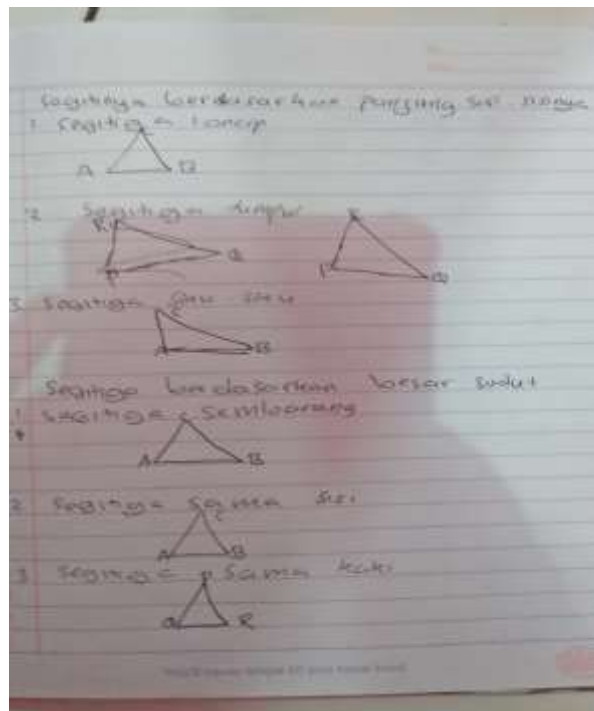 Segitiga berdasarkan panjang sisi nonya
1. Segitiga Lancip
A B
2. Segitiga tumpul
R Q P
R P Q
3. Segitiga siku siku
C A B
Segitiga berdasarkan besar sudut
1. Segitiga sembarang
A B
2. Segitiga sama sisi
C A B
3. Segitiga sama kaki
P Q R